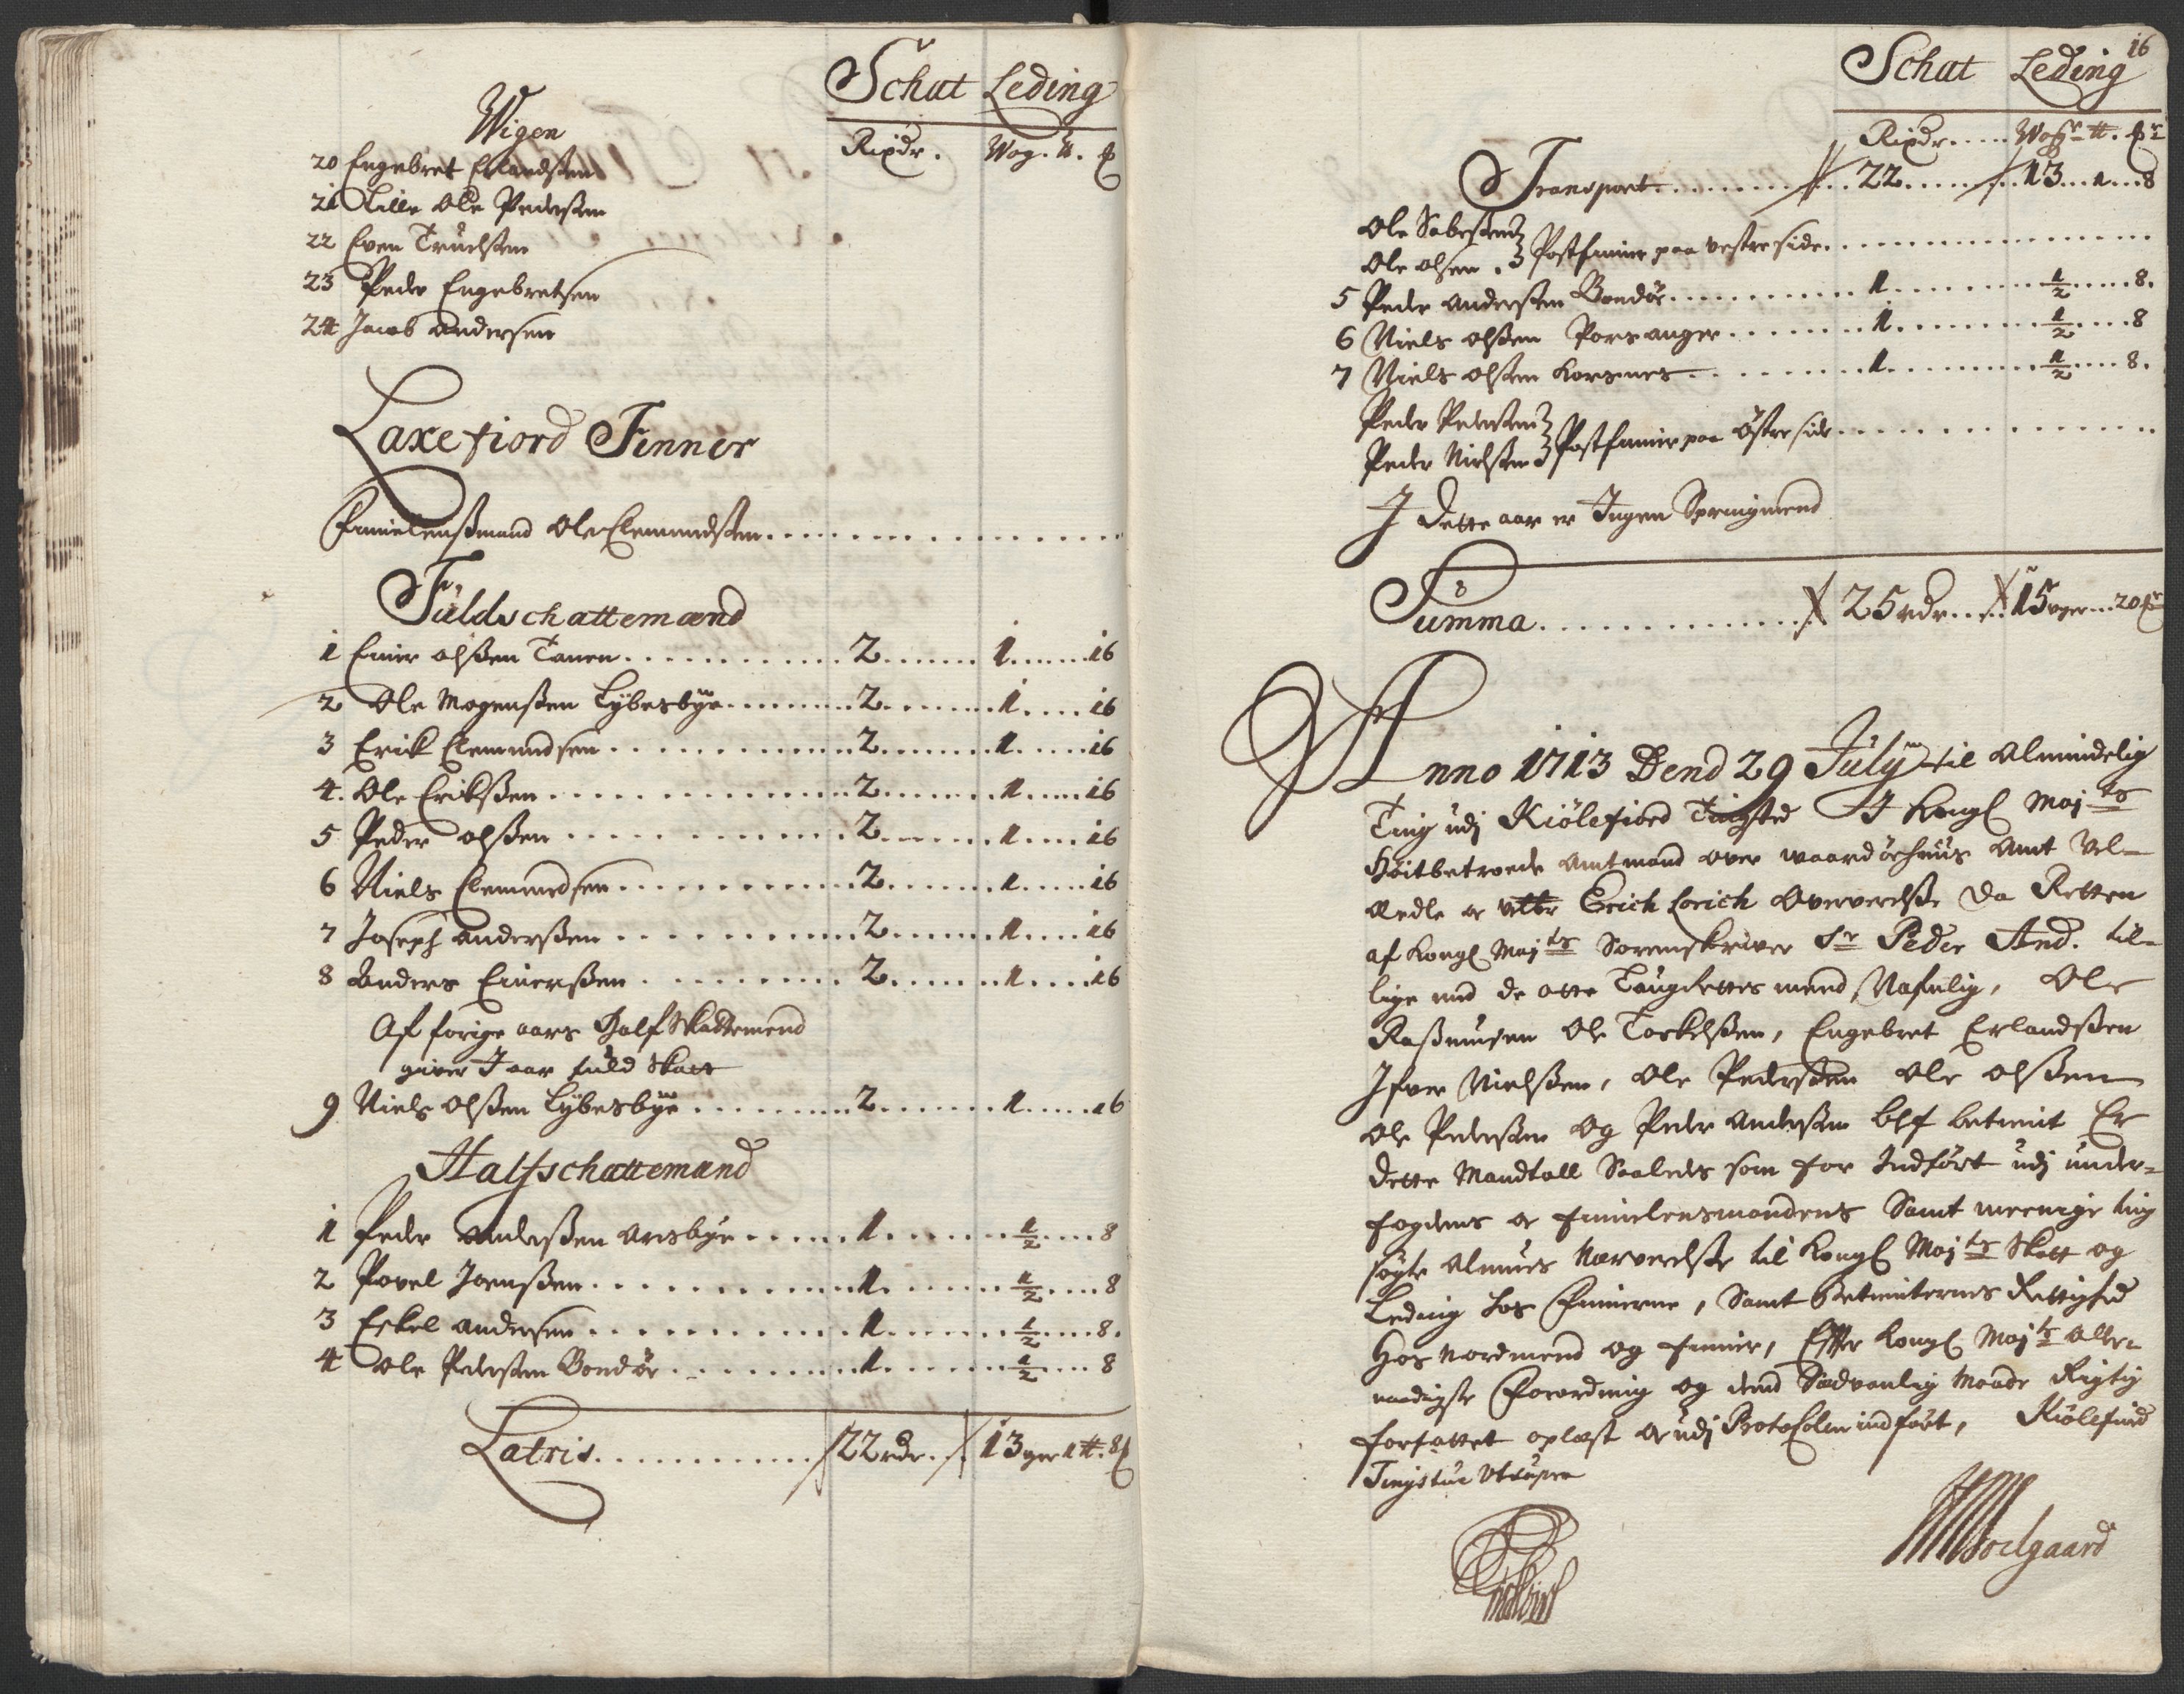 Schat Leding
Rixdr. Wog. ℔.
Wigen
20 Engebret Erlandsen
21 Lille Ole Pedersen
22 Even Truelsen
23 Peder Engebretsen
24 Jacob Andersen
Laxefiord Finner
Finnelensmand Ole Clemmedsen
Fuldschattemænd
1 Einer Olsßen Tanen 2 1 16
2 Ole Mogensßen Lybesbye 2 1 16
3 Erick Clemmedsen 2 1 16
4. Ole Ericksßen 2 1 16
5 Peder Olsßen 2 1 16
6 Niels Clemmedsen 2 1 16
7 Joseph Andersßen 2 1 16
8 Anders Einersßen 2 1 16
Af forige aars Half Skattemend
giver I aar fuld Skatt
9 Niels Olsßen Lybesbye 2 1 16
Halfschattemænd
1 Peder Andersßen Arisbye 1 1/2 8
2 Povel Joensßen 1 1/2 8
3 Eskel Andersen 1 1/2 8.
4 Ole Pedersen Bondøe 1 1/2 8
Latris 22 rdr. 13 wger 1 ℔. 8
16
Schat Leding
Rixdr. Wogr ℔.
Transport 22 13 1 8
Ole Sabesßen
Ole Olsen Postfinner paa vestre side
5 Peder Andersen Bondøe 1 1/2 8.
6 Niels Olsßen Porsanger 1 1/2 8
7 Niels Olsen Korsnes 1 1/2 8.
Peder Pedersen
Peder Nielsen Postfinner paa Østre side
I Dette aar er Ingen Springmend
Summa 25 rdr. 15 wger 20
Anno 1713 Dend 29 July til Almindelig
Ting udj Kiölefiord Tingsted I Kongl Majts
Höitbetroede Amtmand over Waardöehuus Amt Vel-
Ædle Hr Erich Lorich Oververelse da Retten
af Kongl Majts Sorenskriver Sr Peder And. til-
lige med de otte Laugrettes mend Nafnlig, Ole
Rasmusen Ole Torkelsßen, Engebret Erlandsßen
Ifver Nielsßen, Ole Pedersßen Ole Olsßen
Ole Pedersen Og Peder Andersen blef betient Er
dette Mandtall Saaledes som for Indfört udj under-
fogdens og finnelensmandens Samt meenige ting
søgte Almues Nærverelse til Kongl Majts Skatt og
Leding hos Finnerne, Samt Betienternes Rettighed
hos Nordmend og Finner, Effter Kongl Majts Aller-
naadigste Forordning og dend Sædvanlig Maade Rigtig
forfattet oplæst og udj Protocolen indfört, Kiölefiord
Tingstue Ut supra
Soelgaard